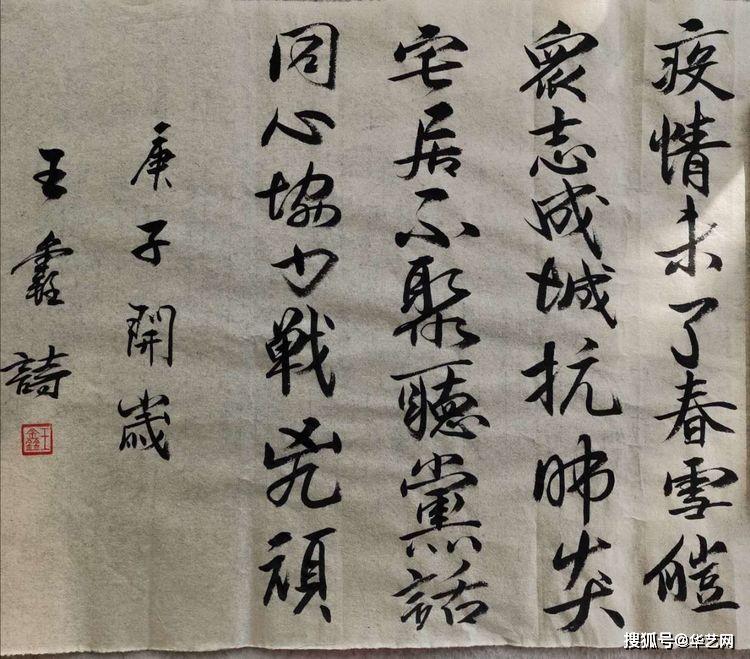 疫情未了春雪皚
衆志成城抗肺炎
宅居不聚聽黨話
同心協力戰兇頑
庚子開歲
王鑫詩
王鑫
搜狐号@华艺网